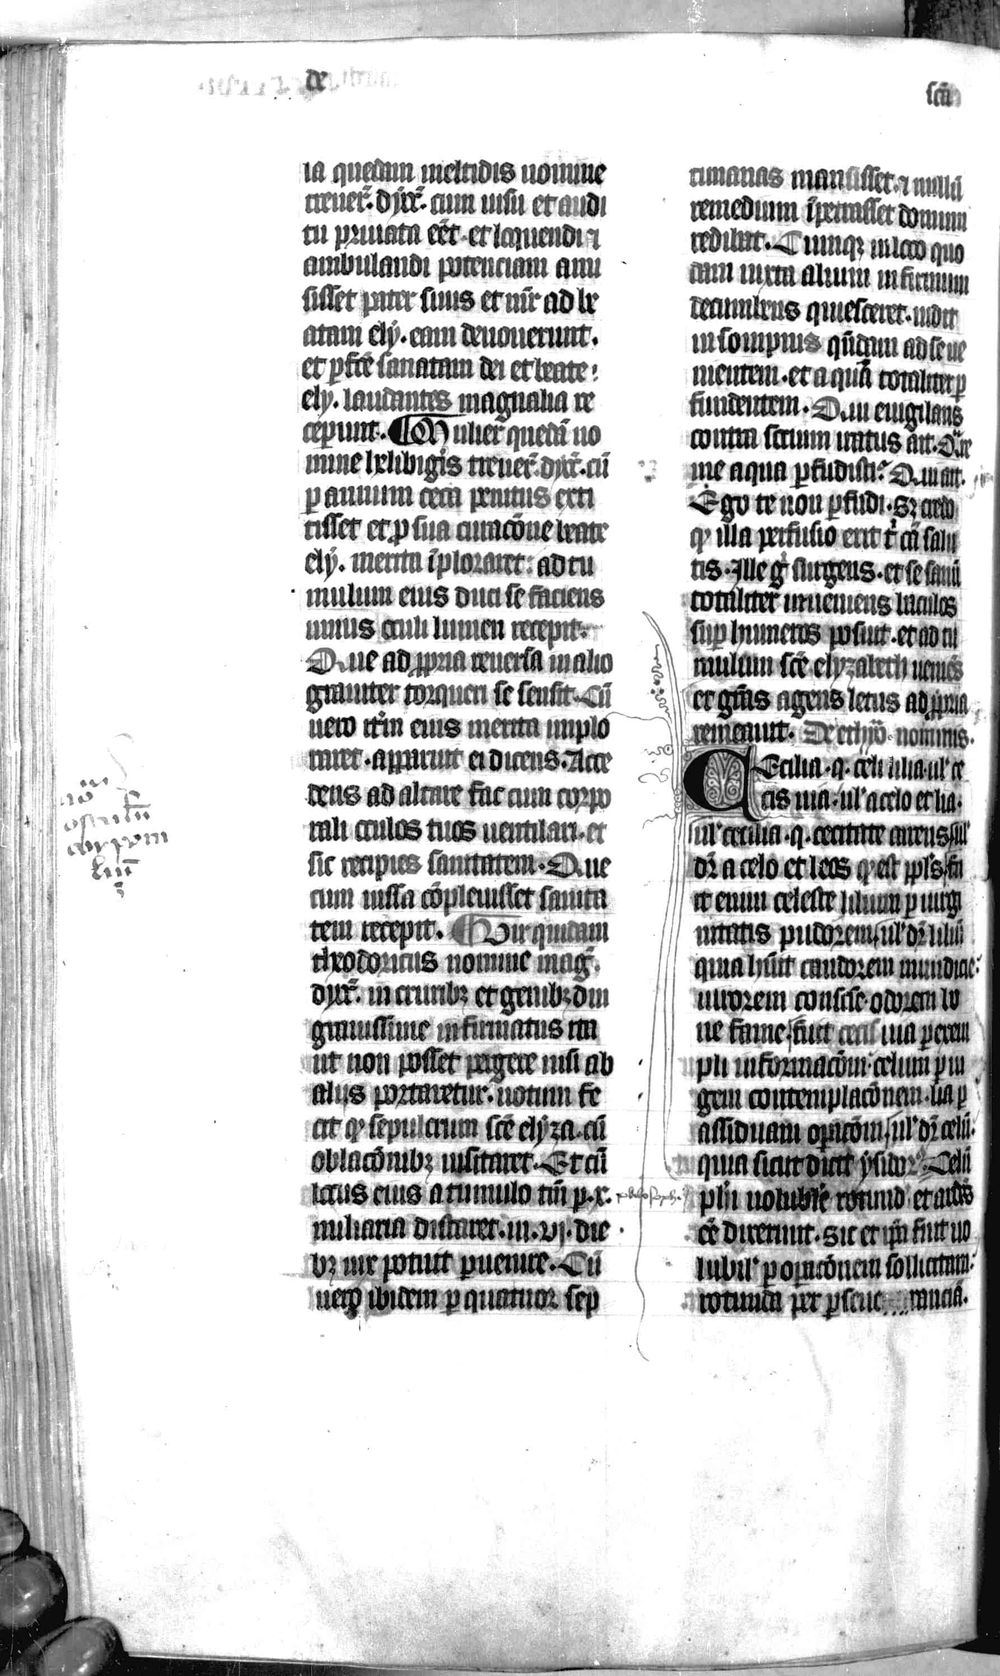 de
scā
ia quedam meltidis nomine
treueř. dyoč. cum uisu et audi
tu priuata eēt. et loquendi ⁊
ambulandi potenciam ami
sisset pater suus et mr̄ ad be
atam ely. eam deuouerunt.
et ꝑfcē sanatam dei et beate
ely. laudantes magnalia re
ceperunt. Mulier quedā no
mine hⁱbigis treueř. dyoč. cū
ꝑ annum ceca penitus exti
tisset et ꝓ sua curacōne beate
ely. merita īploraret. ad tu
mulum eius duci se faciens
unius oculi lumen recepit.
Que ad ꝓpria reuersa in alio
grauiter torqueri se sensit. Cū
uero itꝛ̄m eius merita implo
raret. apparuit ei dicens. Acce
dens ad altare fac cum corpo
rali oculos tuos uentilari. et
sic recipies sanitatem. Que
cum iussa cōpleuisset sanita
tem recepit. Vir quidam
theodoricus nomine maḡ.
dyoč. in crurib⁊ et genib⁊ diu
grauissime infirmatus ita
ut non posset pergere nisi ab
alijs portaretur. uotum fe
cit ꝙ sepulcrum scē elyza. cū
oblacōnib⁊ uisitaret. Et cū
locus eius a tumulo tm̄ ꝑ .x.
miliaria distaret. in .vj. die
b⁊ uix potuit ꝑuenire. Cū
uero ibidem ꝑ quatuor sep
timanas mansisset. ⁊ nullū
remedium īpetrasset domum
redibat. Cumq⁊ in loco quo
dam iuxta alium infirmum
decumbens quiesceret. uidit
in sompnis quēdam ad se ue
nientem. et aqua totaliter ꝑ
fundentem. Qui euigilans
contra socium iratus ait. Quare
me aqua ꝑfudisti. Qui ait.
Ego te non ꝑfudi. S⁊ credo
ꝙ illa perfusio erit tⁱ cā salu
tis. Ille gͦ surgens. et se sanū
totaliter inueniens baculos
suꝑ humeros posuit. et ad tu
mulum scē elyzabeth ueniēs
et grās agens letus ad ꝓpria
remeauit. De ethyō nominis.
Cecilia .q. celi lilia. ul' ce
cis uia. ul' a celo et lia.
ul' cecilia .q. cecitate carens. ul'
dr̄ a celo et leos qͥ est ppl's. fu
it enim celeste lilium ꝑ uirgi
nitatis pudorem. ul' dr̄ lilium
quia h̄uit candorem mundicie.
uirorem consc̄ie. odorem bo
ne fame. fuit cecis uia ꝑ exem
pli informacōm. celum ꝑ iu
gem contemplacōnem. lia ꝑ
assiduam oꝑacōm. ul' dr̄ celū.
quia sicut dicit ysidor9. Celū
phi uolubile rotund' et ardēs
eē dixerunt. Sic et ipā fuit uo
lubil' ꝑ oꝑacōnem sollicitam.
rotunda per ꝑseue....ranciā.